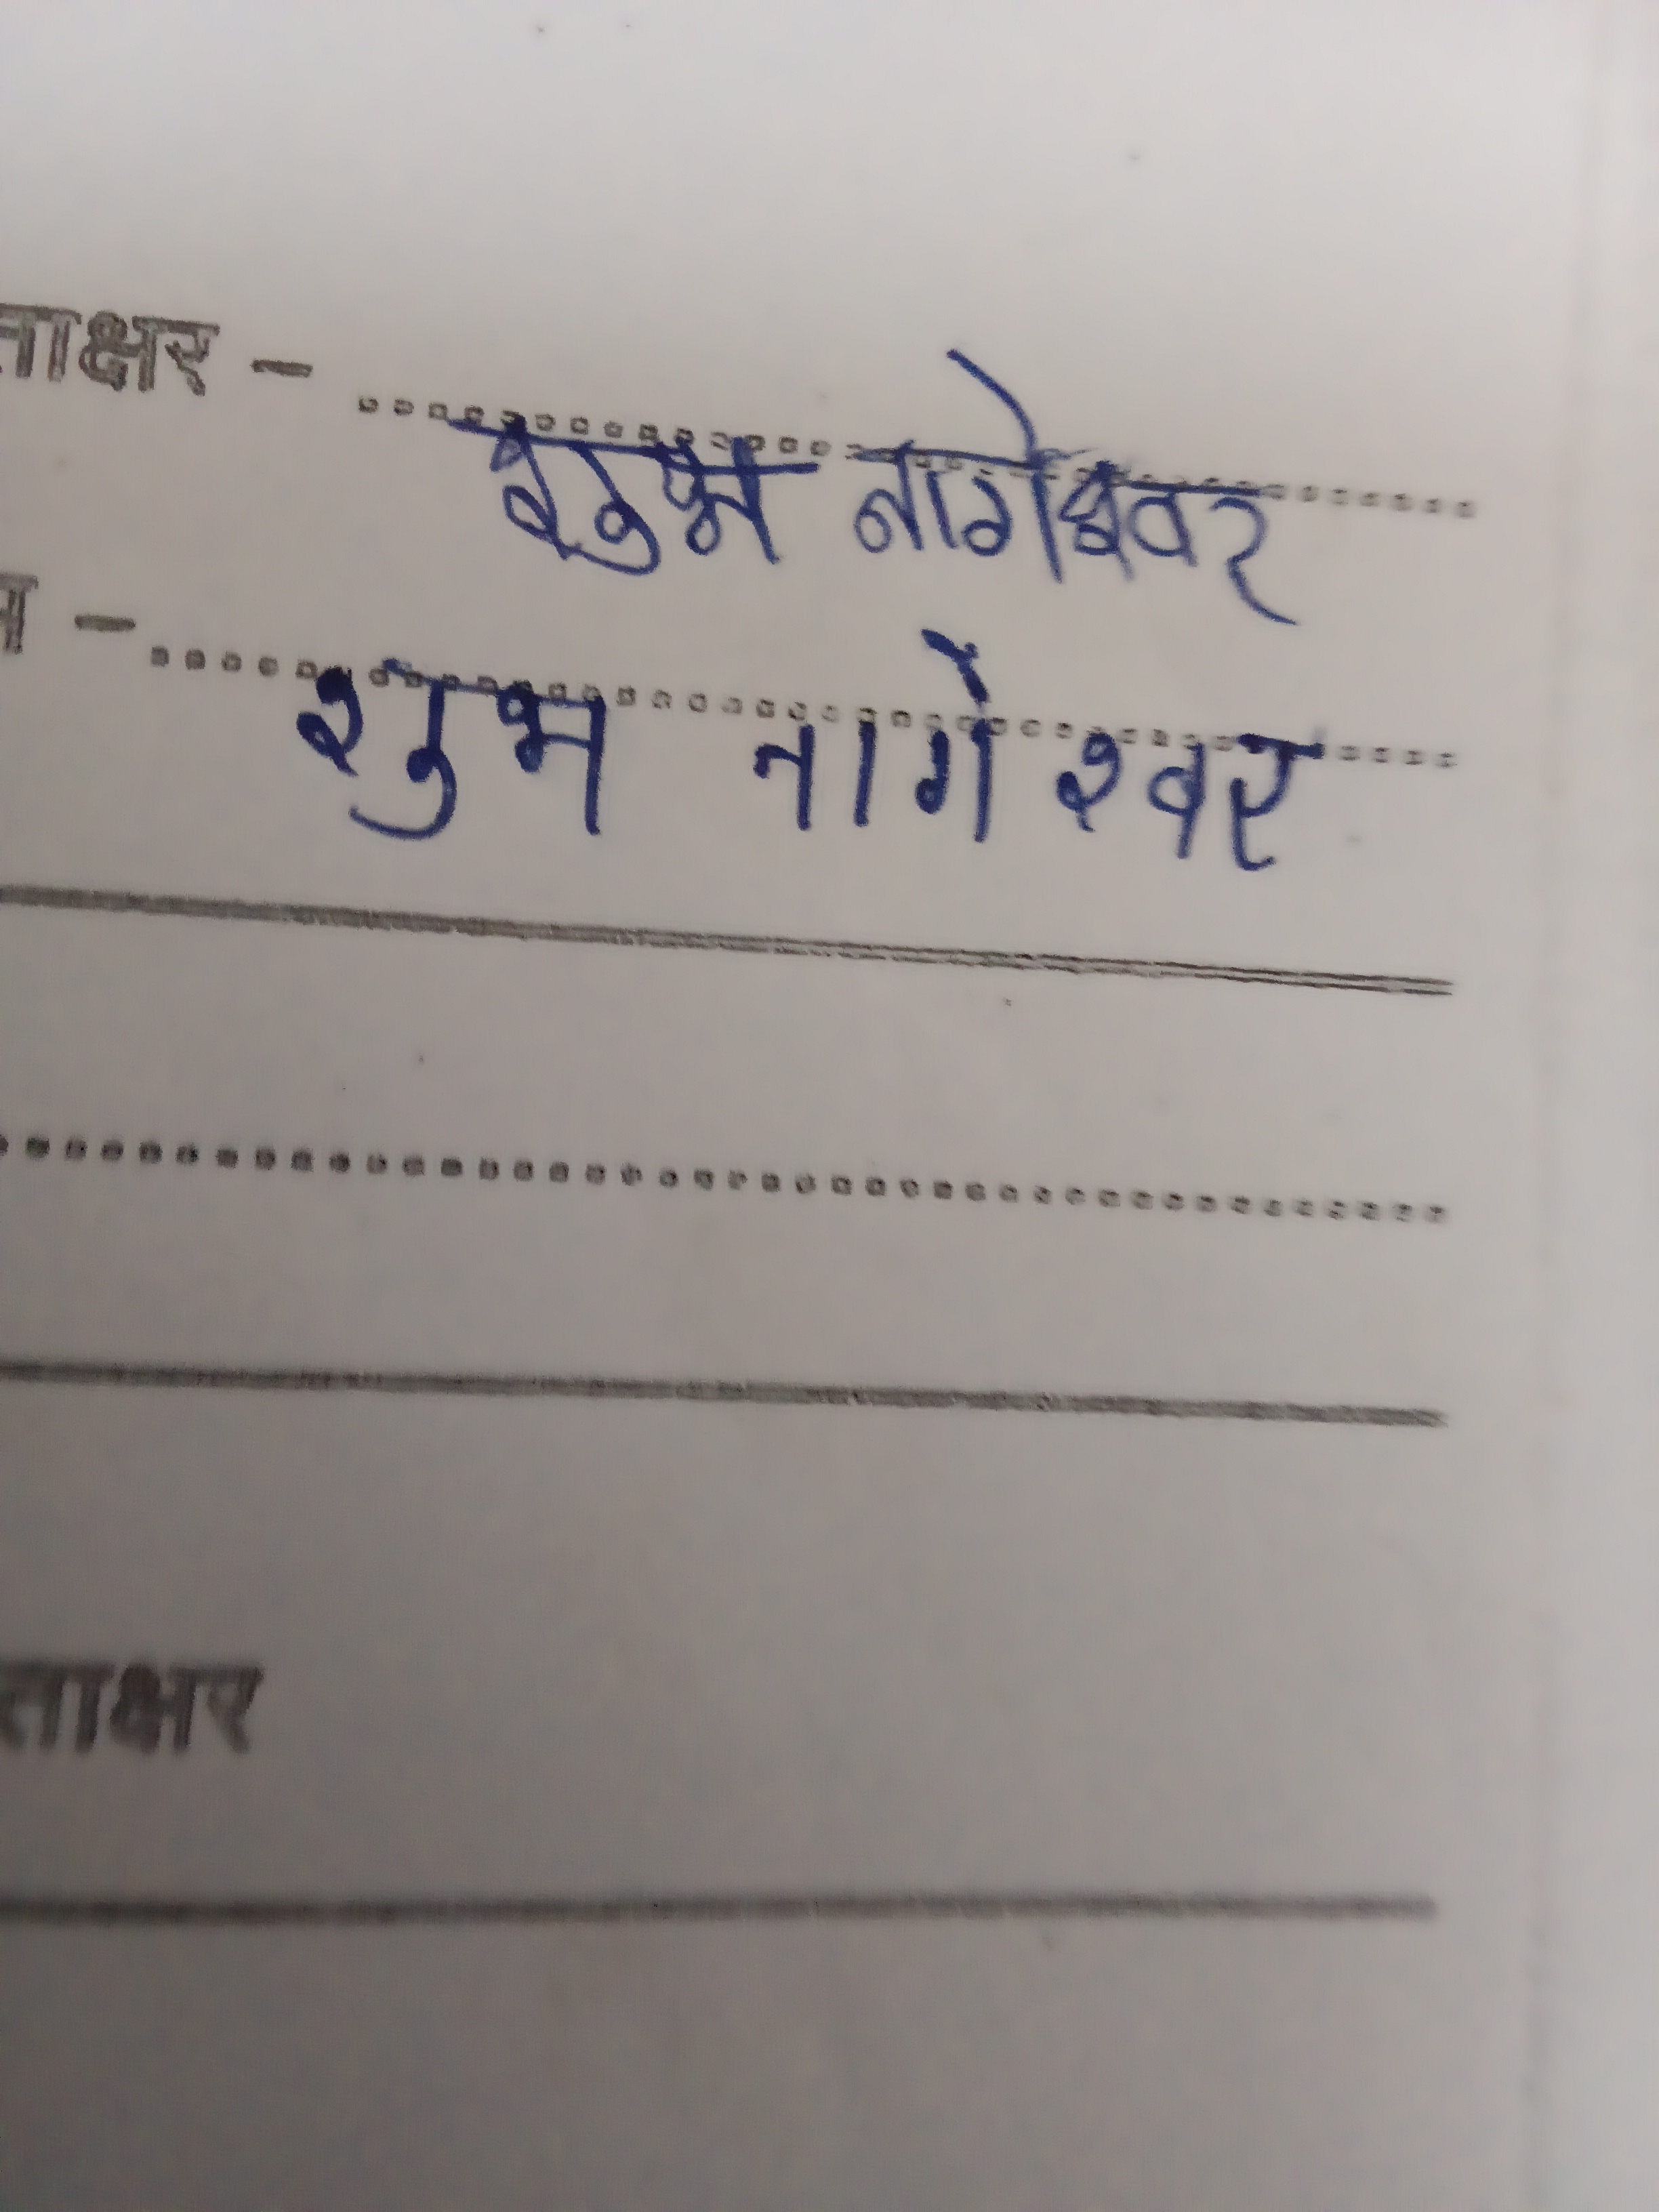 ताक्षर - शुभ नागेश्वर
म - शुभ नागेश्वर
ताक्षर